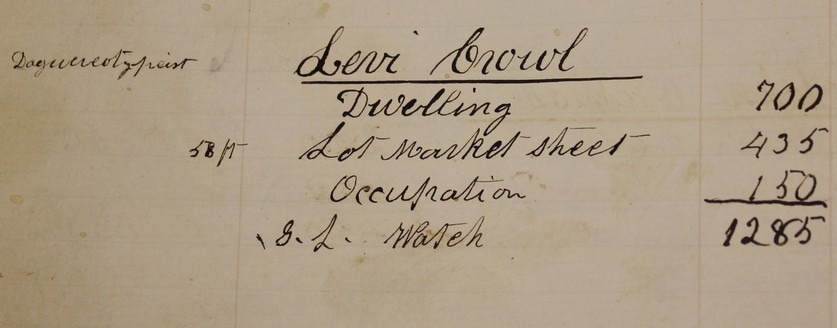 Daguereotypeist Levi Crowl
Dwelling 700
58 ft Lot Market street 435
Occupation 150
G. L. Watch 1285